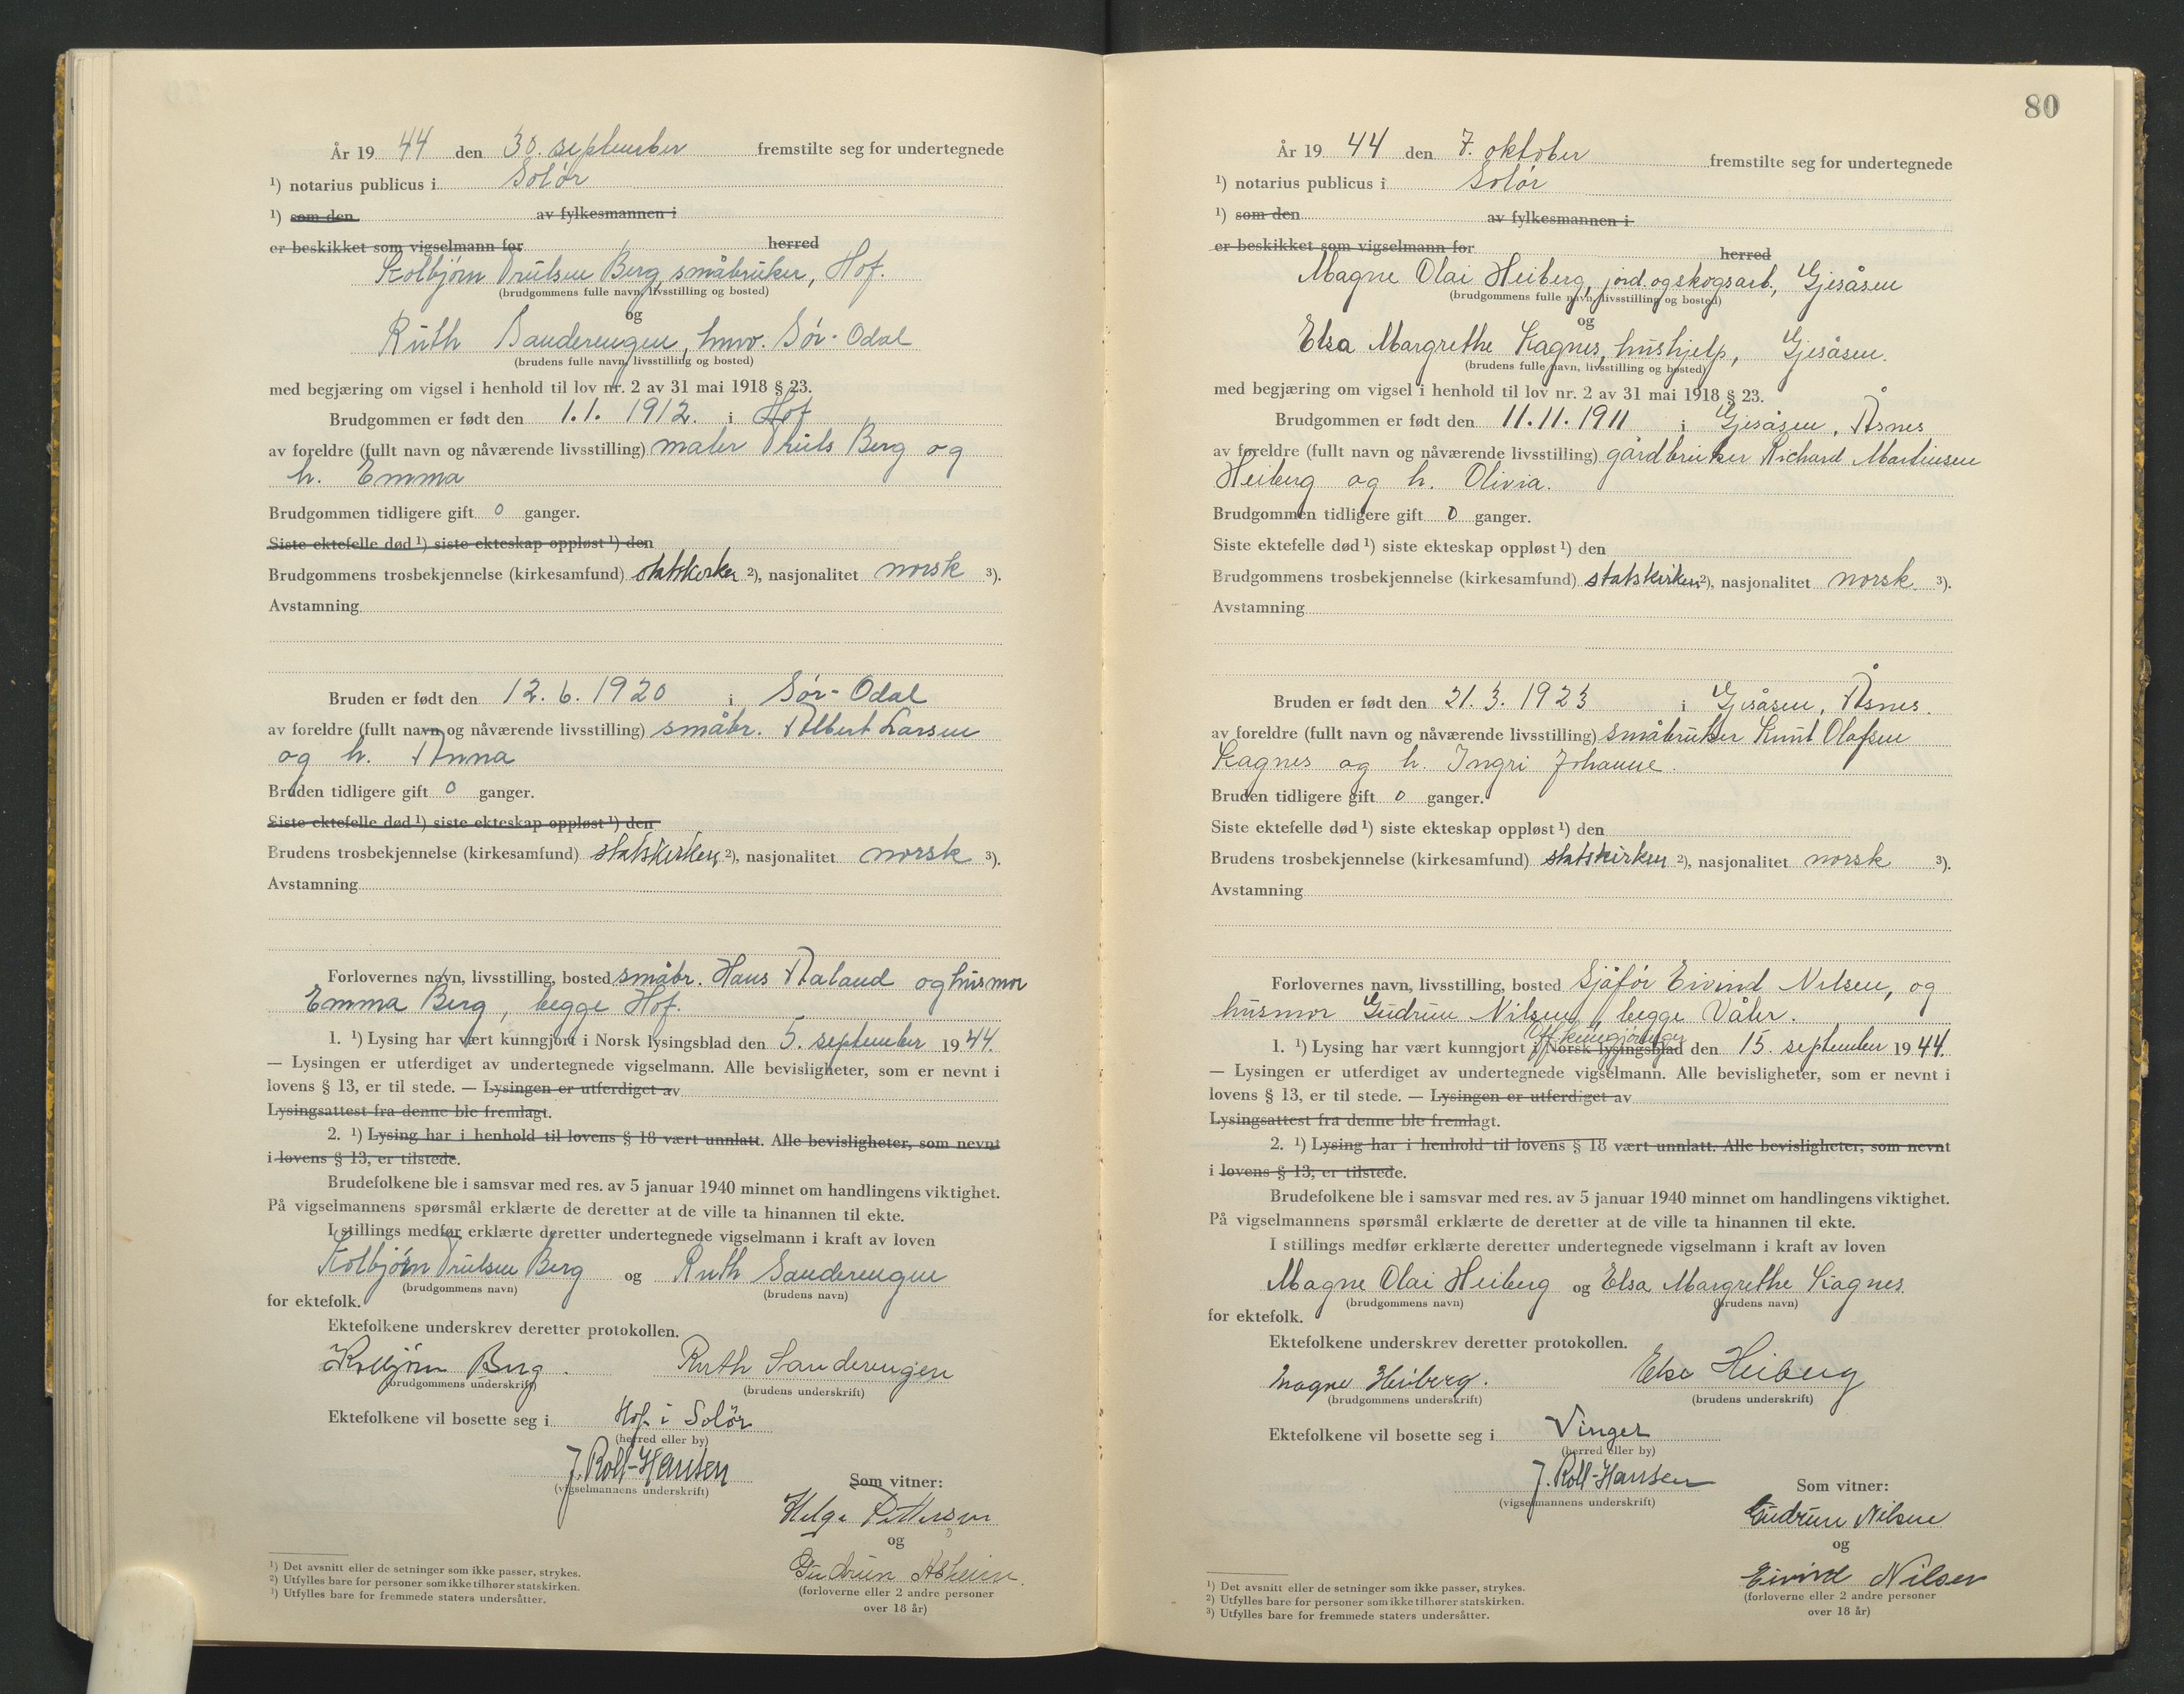 År 19 44 den 30. september fremstilte seg for undertegnede
¹) notarius publicus i Solør
¹) som den av fylkesmannen i
er beskikket som vigselmann for herred
Kolbjørn Trulsen Berg, småbruker, Hof.
(brudgommens fulle navn, livsstilling og bosted)
og
Ruth Sanderengen, hmv. Sør-Odal
(brudens fulle navn, livsstilling og bosted)
med begjæring om vigsel i henhold til lov nr. 2 av 31 mai 1918 § 23.
Brudgommen er født den 1.1. 1912. i Hof
av foreldre (fullt navn og nåværende livsstilling) maler Truls Berg og
h. Emma
Brudgommen tidligere gift 0 ganger.
Siste ektefelle død ¹) siste ekteskap oppløst ¹) den
Brudgommens trosbekjennelse (kirkesamfund) statskirken ²), nasjonalitet norsk ³).
Avstamning
Bruden er født den 12. 6. 1920 i Sør-Odal
av foreldre (fullt navn og nåværende livsstilling) småbr. Albert Larsen
og h. Anna
Bruden tidligere gift 0 ganger.
Siste ektefelle død ¹) siste ekteskap oppløst ¹) den
Brudens trosbekjennelse (kirkesamfund) statskirken ²), nasjonalitet norsk ³).
Avstamning
Forlovernes navn, livsstilling, bosted småbr. Hans Aaland og husmor
Emma Berg, begge Hof.
1. ¹) Lysing har vært kunngjort i Norsk lysingsblad den 5. september 19 44.
— Lysingen er utferdiget av undertegnede vigselmann. Alle bevisligheter, som er nevnt i
lovens § 13, er til stede. — Lysingen er utferdiget av
Lysingsattest fra denne ble fremlagt.
2. ¹) Lysing har i henhold til lovens § 18 vært unnlatt. Alle bevisligheter, som nevnt
i lovens § 13, er tilstede.
Brudefolkene ble i samsvar med res. av 5 januar 1940 minnet om handlingens viktighet.
På vigselmannens spørsmål erklærte de deretter at de ville ta hinannen til ekte.
I stillings medfør erklærte deretter undertegnede vigselmann i kraft av loven
Kolbjørn Trulsen Berg og Ruth Sanderengen
(brudgommens navn) (brudens navn)
for ektefolk.
Ektefolkene underskrev deretter protokollen.
Kolbjørn Berg. Ruth Sanderengen
(brudgommens underskrift) (brudens underskrift)
Ektefolkene vil bosette seg i Hof i Solør
(herred eller by)
J. Roll-Hansen
(vigselmannens underskrift)
Som vitner:
Helge Pettersen
og
Gudrun Åsheim.
(forloverne eller 2 andre personer
over 18 år)
¹) Det avsnitt eller de setninger som ikke passer, strykes.
²) Utfylles bare for personer som ikke tilhører statskirken.
¹) Utfylles bare for fremmede staters undersåtter.
80
År 19 44 den 7. oktober fremstilte seg for undertegnede
¹) notarius publicus i Solør
¹) som den av fylkesmannen i
er beskikket som vigselmann for herred
Magne Olai Heiberg, jord. og skogsarb., Gjesåsen
(brudgommens fulle navn, livsstilling og bosted)
og
Elsa Margrethe Kagnes, hushjelp, Gjesåsen.
(brudens fulle navn, livsstilling og bosted)
med begjæring om vigsel i henhold til lov nr. 2 av 31 mai 1918 § 23.
Brudgommen er født den 11. 11. 1911 i Gjesåsen, Åsnes
av foreldre (fullt navn og nåværende livsstilling) gårdbruker Richard Martinsen
Heiberg og h. Olivia.
Brudgommen tidligere gift 0 ganger.
Siste ektefelle død ¹) siste ekteskap oppløst ¹) den
Brudgommens trosbekjennelse (kirkesamfund) statskirken ²), nasjonalitet norsk ³).
Avstamning
Bruden er født den 21. 3. 1923 i Gjesåsen, Åsnes.
av foreldre (fullt navn og nåværende livsstilling) småbruker Knut Olafsen
Kagnes og h. Ingri Johanne.
Bruden tidligere gift 0 ganger.
Siste ektefelle død ¹) siste ekteskap oppløst ¹) den
Brudens trosbekjennelse (kirkesamfund) statskirken ²), nasjonalitet norsk ³).
Avstamning
Forlovernes navn, livsstilling, bosted sjåfør Eivind Nilsen, og
husmor Gudrun Nilsen, begge Våler.
Off. kunngjøringer
1. ¹) Lysing har vært kunngjort i Norsk lysingsblad den 15. september 19 44.
— Lysingen er utferdiget av undertegnede vigselmann. Alle bevisligheter, som er nevnt i
lovens § 13, er til stede. — Lysingen er utferdiget av
Lysingsattest fra denne ble fremlagt.
2. ¹) Lysing har i henhold til lovens § 18 vært unnlatt. Alle bevisligheter, som nevnt
i lovens § 13, er tilstede.
Brudefolkene ble i samsvar med res. av 5 januar 1940 minnet om handlingens viktighet.
På vigselmannens spørsmål erklærte de deretter at de ville ta hinannen til ekte.
I stillings medfør erklærte deretter undertegnede vigselmann i kraft av loven
Magne Olai Heiberg og Elsa Margrethe Kagnes
(brudgommens navn) (brudens navn)
for ektefolk.
Ektefolkene underskrev deretter protokollen.
Magne Heiberg. Else Heiberg
(brudgommens underskrift) (brudens underskrift)
Ektefolkene vil bosette seg i Vinger
(herred eller by)
J. Roll-Hansen
(vigselmannens underskrift)
Som vitner:
Gudrun Nilsen
og
Eivind Nilsen
(forloverne eller 2 andre personer
over 18 år)
¹) Det avsnitt eller de setninger som ikke passer, strykes.
²) Utfylles bare for personer som ikke tilhører statskirken.
³) Utfylles bare for fremmede staters undersåtter.